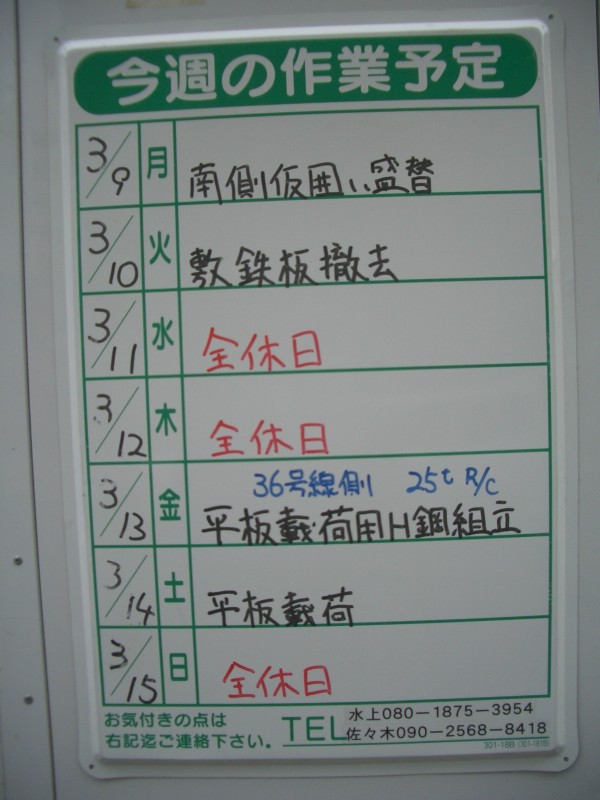 今週の作業予定
3/9 月 南側仮囲い盛替
3/10 火 敷鉄板撤去
3/11 水 全休日
3/12 木 全休日
36号線側 25t R/C
3/13 金 平板載荷用H鋼組立
3/14 土 平板載荷
3/15 日 全休日
お気付きの点は
右記迄ご連絡下さい。
TEL
水上080-1875-3954
佐々木090-2568-8418